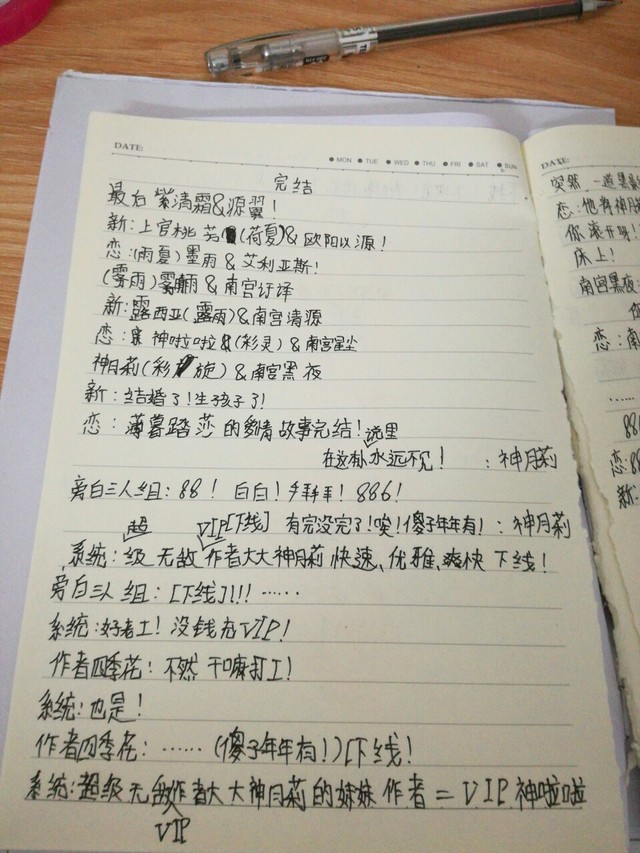 DATE:
MON TUE WED THU FRI SAT SUN
完结
最后紫滴霜&源翼!
新:上官桃芳(荷夏)&欧阳以源!
恋:(雨夏)墨雨&艾利亚斯!
(雾雨)雾雨&南宫订译
新:露西亚(露雨)&南宫清源
恋:神啦啦&(彩灵)&南宫星尘
神月莉(彩旋)&南宫黑夜
新:结婚了!生孩子了!
恋:薄暮踏莎的爱情故事完结!
在这里永远不见!:神月莉
旁白三人组:88!白白!拜拜!886!
超 VIP[下线] 有完没完了!唉!傻子年年有!:神月莉
系统:级无敌作者大大神月莉快速、优雅、爽快下线!
旁白三人组:[下线]!!!……
系统:好老工!没钱充VIP!
作者四季花:不然干嘛打工!
系统:也是!
作者四季花:……(傻子年年有!)[下线!
系统:超级无敌作者大大神月莉的妹妹作者=VIP神啦啦
VIP
DATE:
突然,一道黑影
恋:他将神月
你滚开呀!
床上!
南宫黑夜:
恋:南
……
88
恋:88
新: